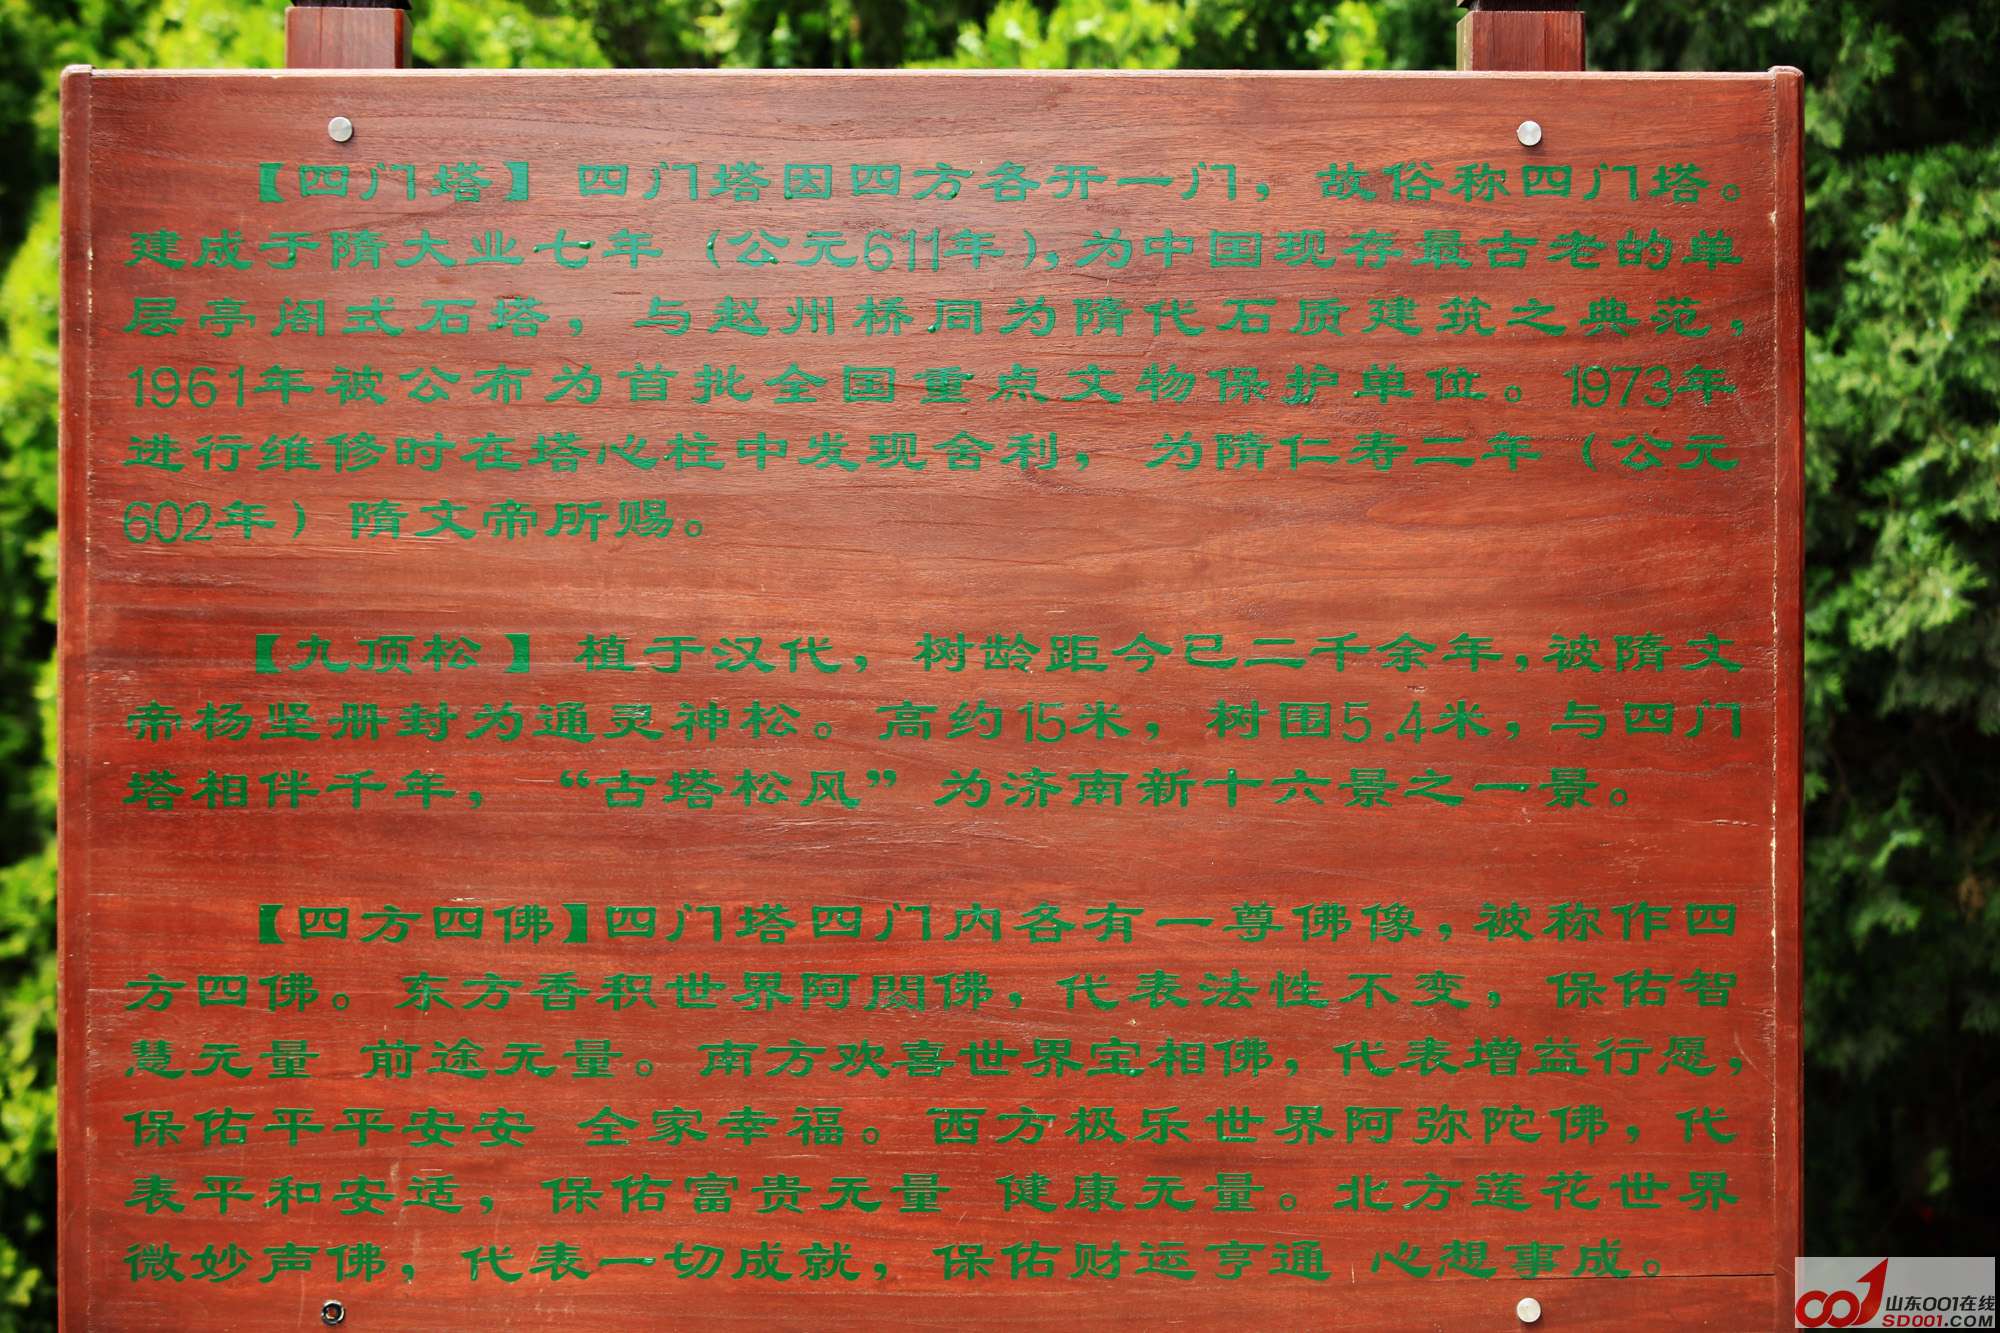 【四门塔】四门塔因四方各开一门，故俗称四门塔。
建成于隋大业七年（公元611年），为中国现存最古老的单
层亭阁式石塔，与赵州桥同为隋代石质建筑之典范，
1961年被公布为首批全国重点文物保护单位。1973年
进行维修时在塔心柱中发现舍利，为隋仁寿二年（公元
602年）隋文帝所赐。
【九顶松】植于汉代，树龄距今已二千余年，被隋文
帝杨坚册封为通灵神松。高约15米，树围5.4米，与四门
塔相伴千年，“古塔松风”为济南新十六景之一景。
【四方四佛】四门塔四门内各有一尊佛像，被称作四
方四佛。东方香积世界阿閦佛，代表法性不变，保佑智
慧无量 前途无量。南方欢喜世界宝相佛，代表增益行愿，
保佑平平安安 全家幸福。西方极乐世界阿弥陀佛，代
表平和安适，保佑富贵无量 健康无量。北方莲花世界
微妙声佛，代表一切成就，保佑财运亨通 心想事成。
山东001在线
SD001.COM